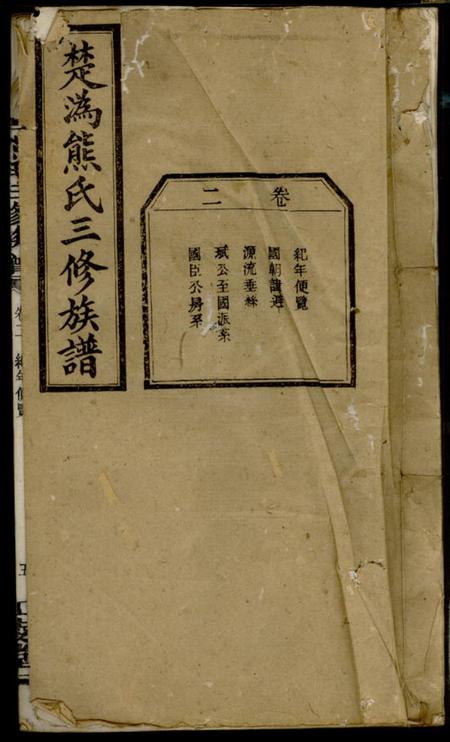 楚溈熊氏三修族譜
卷二
紀年便覽
國朝諱避
源流垂絲
弎公至國派系
國臣公房系
卷二 紀年便覽
五